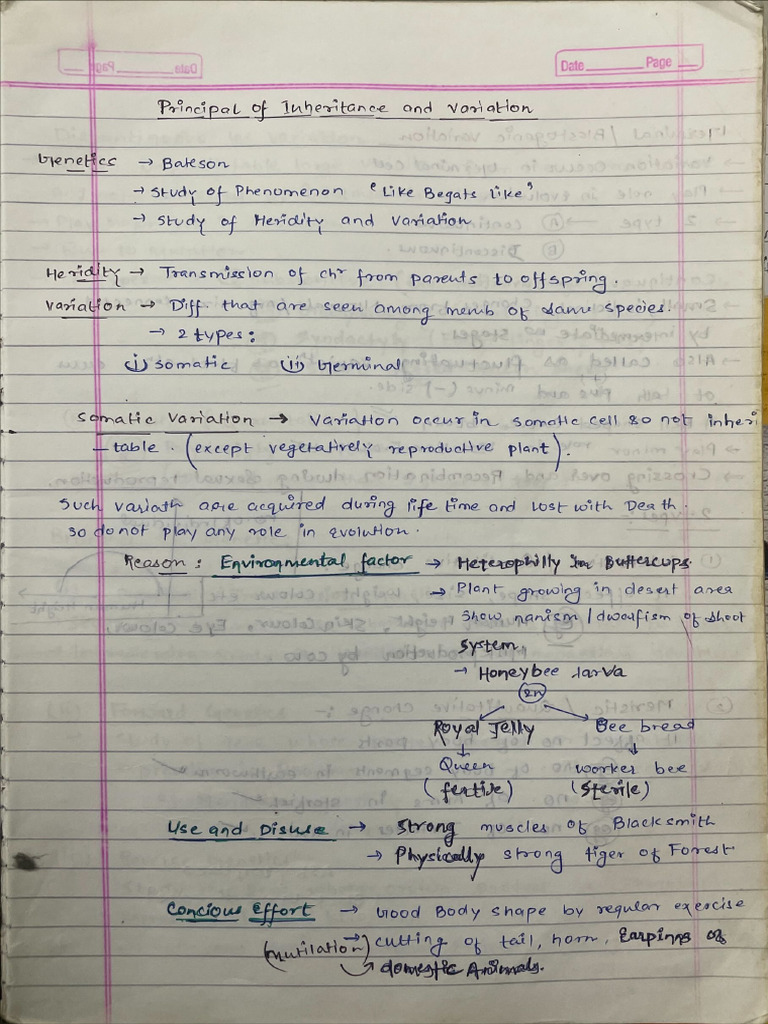 Date Page
Principal of Inheritance and Variation
Genetics → Bateson
→ Study of Phenomenon "Like Begats like"
→ Study of Heridity and Variation
Heridity → Transmission of chr from parents to offspring.
Variation → Diff. that are seen among memb of same species.
→ 2 types:
(i) Somatic (ii) Germinal
Somatic Variation → Variation occur in somatic cell so not inheri
-table. (except vegetatively reproductive plant).
Such variatn are acquired during life time and lost with Death.
so do not play any role in evolution.
Reason: Environmental factor → Heterophilly in Buttercups.
→ Plant growing in desert area
Show nanism / dwarfism of shoot
system.
→ Honeybee larva
2n
Royal Jelly Bee bread
↓ ↓
Queen worker bee
(fertive) (Sterile)
Use and Disuse → Strong muscles of Blacksmith
→ Physically strong tiger of Forest
Concious Effort → Good Body shape by regular exercise
(mutilation) → cutting of tail, horn, Earpinns of
→ domestic Animals.